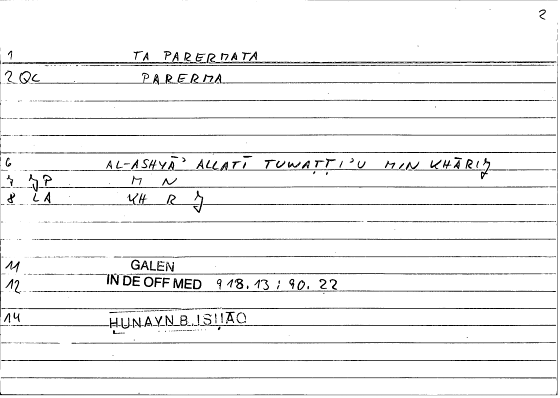 2
1 TA PARERMATA
2 QC PARERMA
6 AL-ASHYĀʾ ALLATĪ TUWAṬṬIʾU MIN KHĀRIJ
7 JP M N
8 LA KH R J
11 GALEN
12 IN DE OFF MED 918.13 ; 90.22
14 ḤUNAYN B. ISḤĀQ